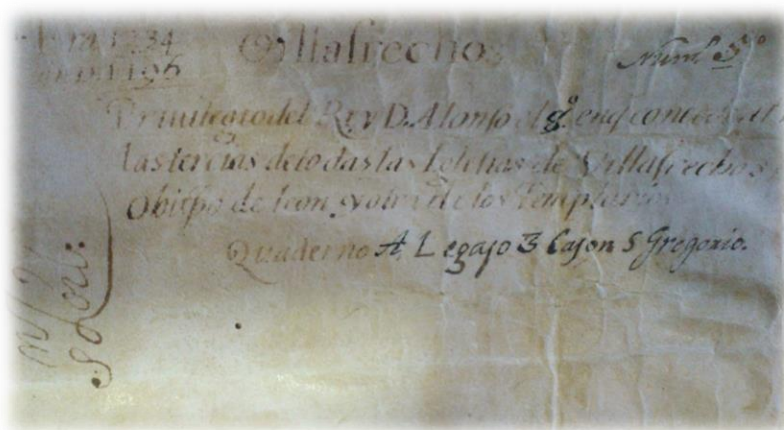 Era 1234 Villafrechos Num.º 3.º
anno 1196
Priuilegio del Rey D. Alonso el 8.º en q concede al
las tercias de todas las Iglesias de Villafrechos
Obispo de Leon y otra de los Templarios
Quaderno A, Legajo 3 Cajon S Gregorio.